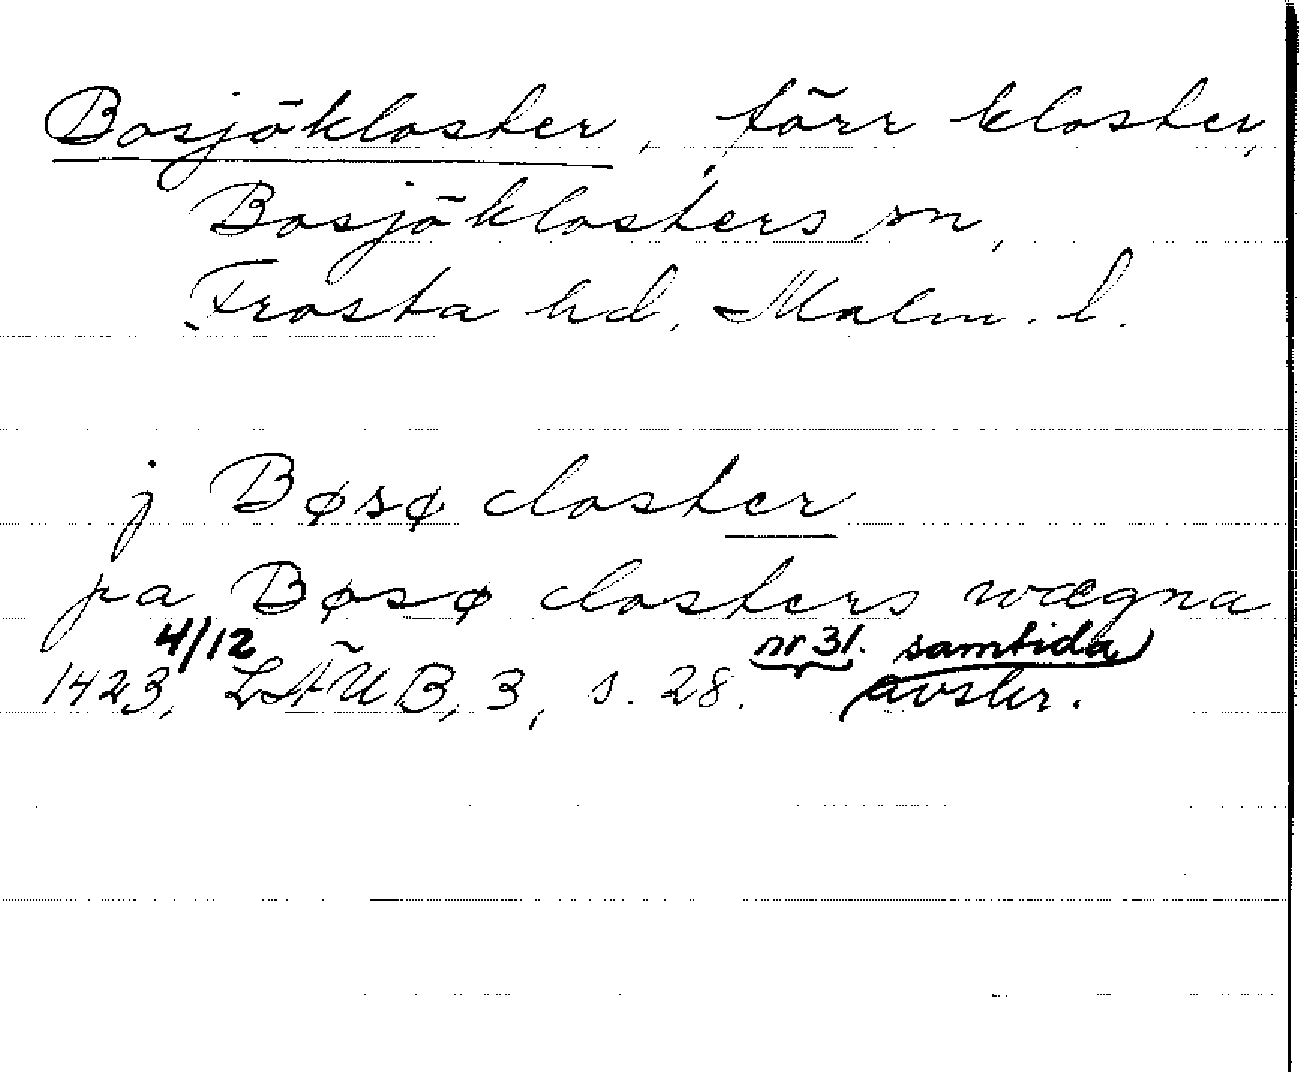 Bosjökloster, förr kloster,
Bosjöklosters sn,
Frosta hd, Malm. l.
j Bøsø closter
pa Bøsø closters wægna
4/12 nr 31. samtida
1423, LÄUB, 3, s. 28. avskr.